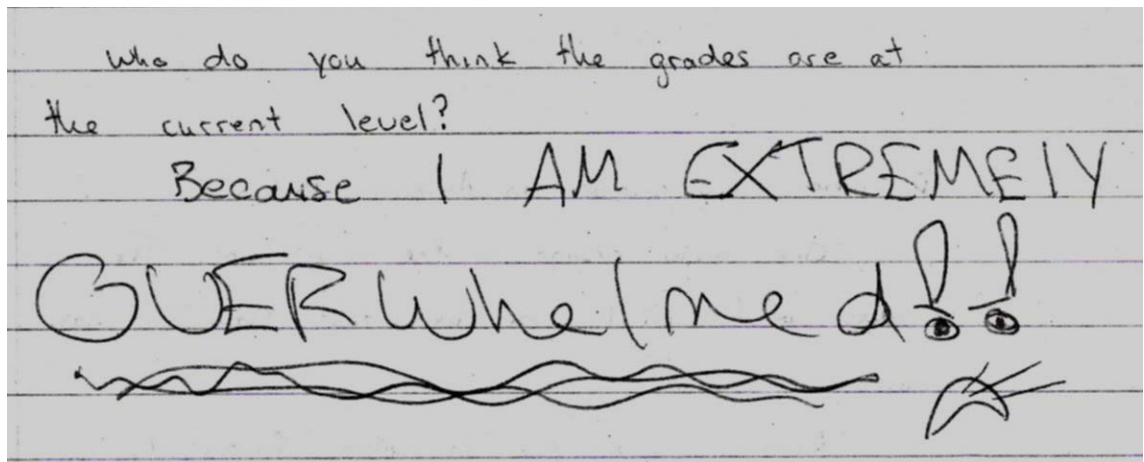 who do you think the grades are at
the current level?
Because I AM EXTREMElY
OVERWhelmed!!